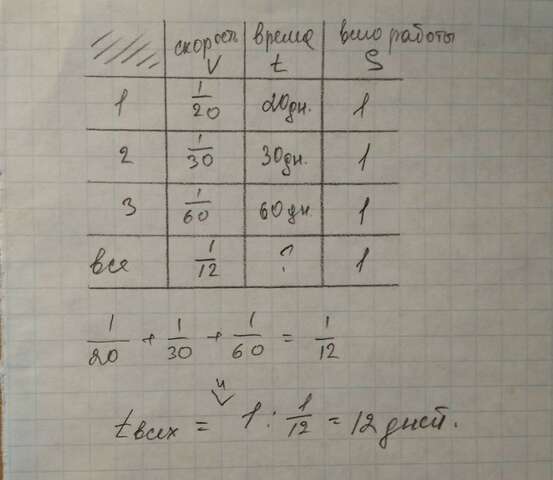 скорость время в-ло работы
V t S
1 1/20 20дн. 1
2 1/30 30дн. 1
3 1/60 60дн. 1
все 1/12 ? 1
1/20 + 1/30 + 1/60 = 1/12
t всех = 1 : 1/12 = 12 дней.